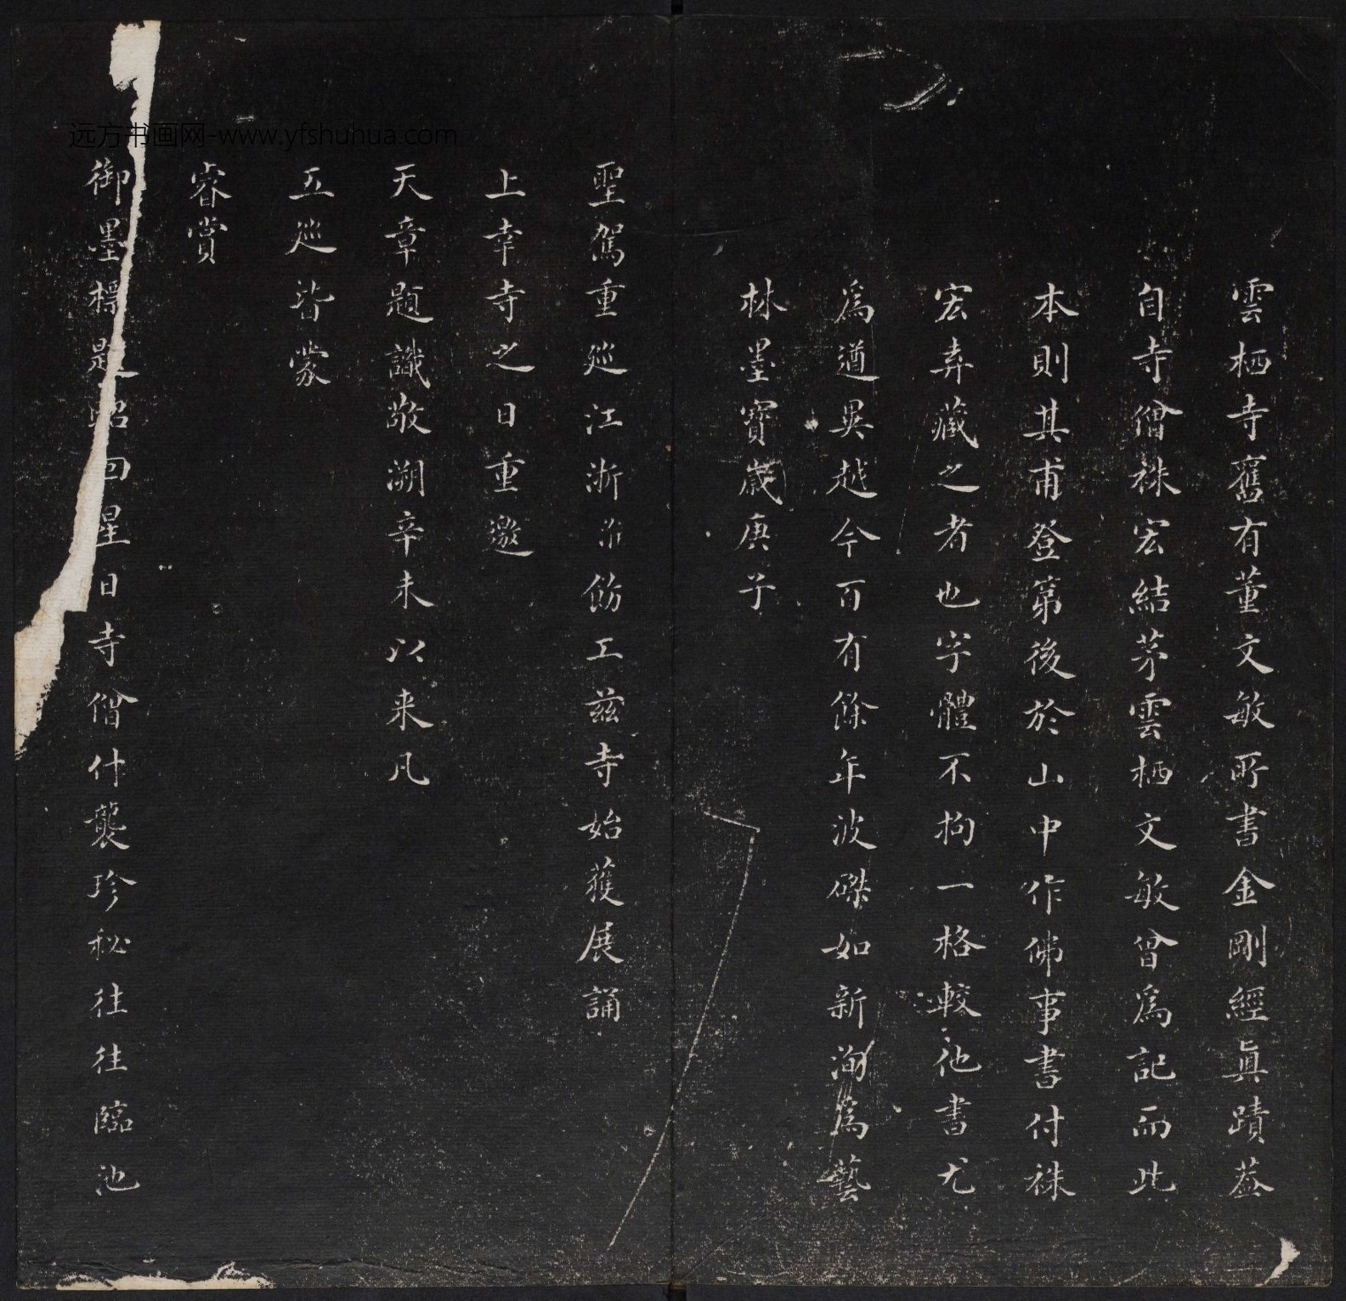 雲栖寺舊有董文敏所書金剛經眞蹟蓋
自寺僧袾宏結茅雲栖文敏曾爲記而此
本則其甫登第後於山中作佛事書付袾
宏弆藏之者也字體不拘一格較他書尤
爲遒異越今百有餘年波磔如新洵爲藝
林墨寶歲庚子
聖駕重廵江浙飭工茲寺始獲展誦
上幸寺之日重邀
天章題識敬溯辛未以来凡
五廵皆蒙
睿賞
御墨標題昭回星日寺僧什襲珍秘往往臨池
远方书画网-www.yfshuhua.com